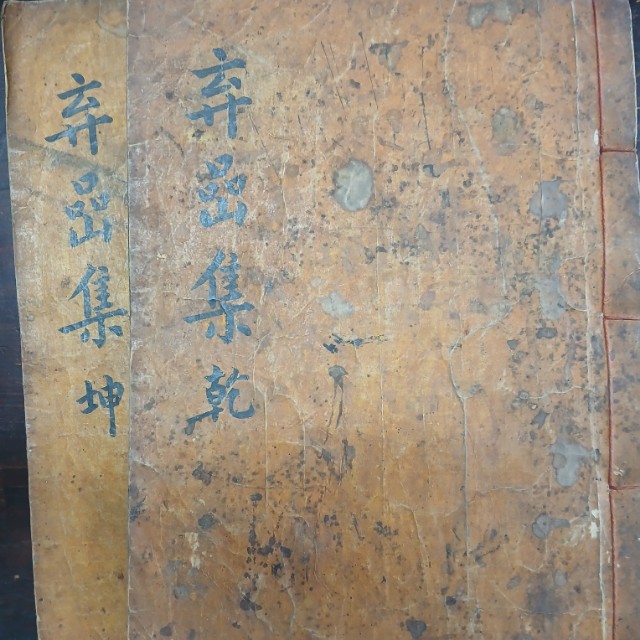 弃嵒集乾
弃嵒集坤